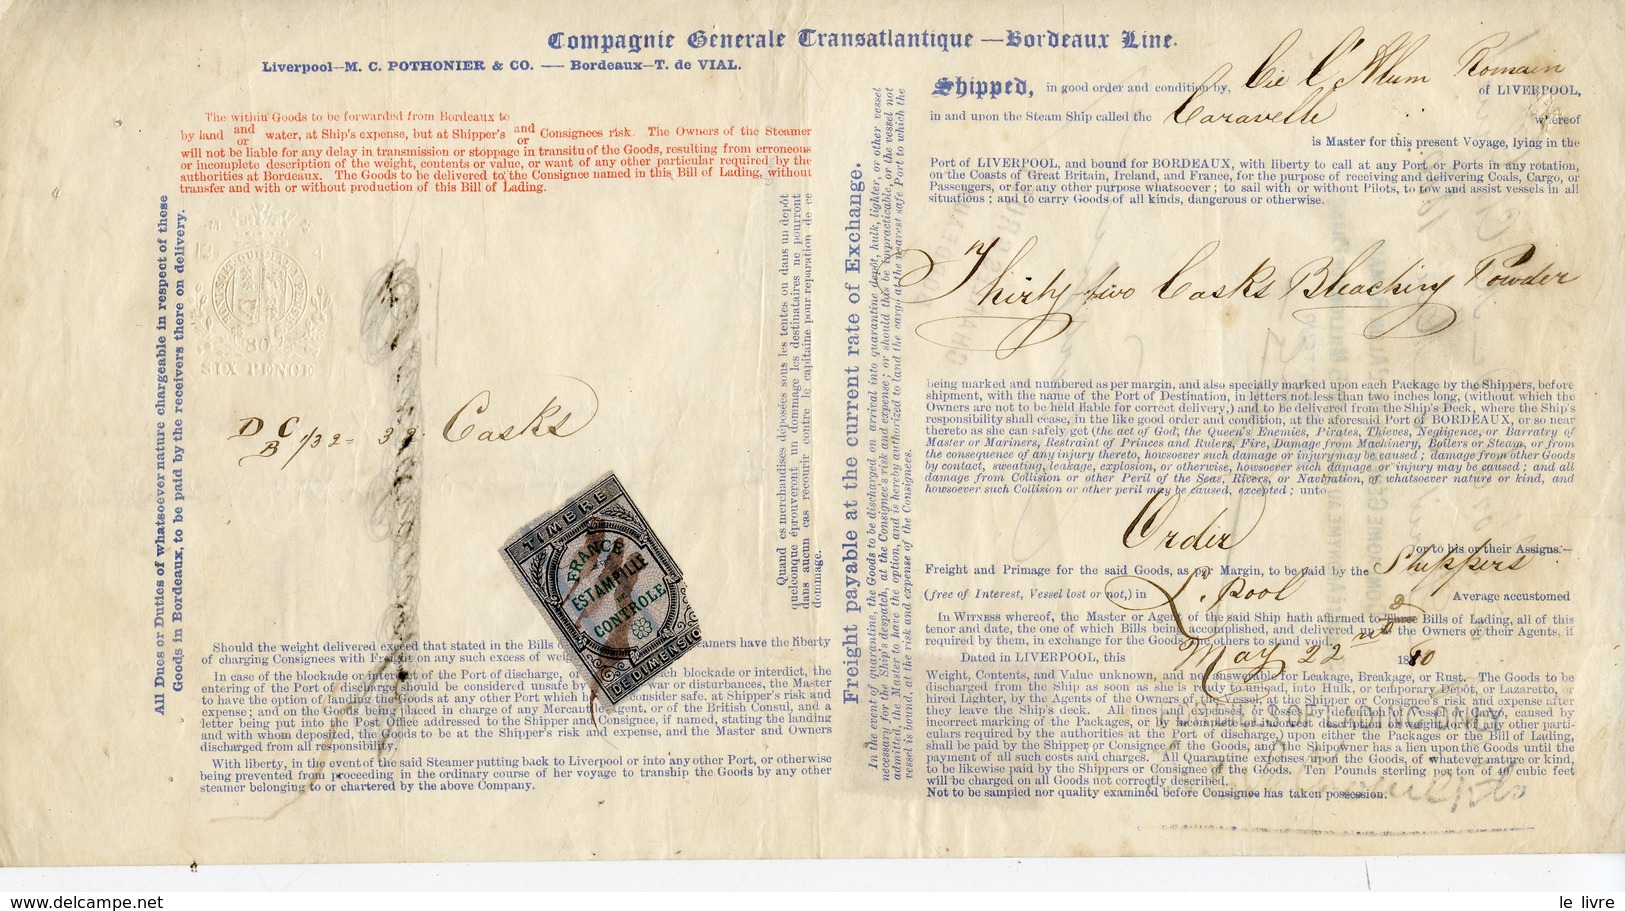 Compagnie Generale Transatlantique — Bordeaux Line.
Liverpool—M. C. POTHONIER & CO. — Bordeaux—T. de VIAL.
The within Goods to be forwarded from Bordeaux to
by land and or water, at Ship's expense, but at Shipper's and or Consignees risk. The Owners of the Steamer
will not be liable for any delay in transmission or stoppage in transitu of the Goods, resulting from erroneous
or incomplete description of the weight, contents or value, or want of any other particular required by the
authorities at Bordeaux. The Goods to be delivered to the Consignee named in this Bill of Lading, without
transfer and with or without production of this Bill of Lading.
All Dues or Duties of whatsoever nature chargeable in respect of these
Goods in Bordeaux, to be paid by the receivers there on delivery.
80
SIX PENCE
D C
B 1/32 = 32 Casks
TIMBRE
FRANCE
ESTAMPILLE
DE
CONTROLE
DE DIMENSIO
Quand ces merchandises déposées sous les tentes ou dans un depôt
quelconque éprouveront un dommage les destinataires ne pourront
dans aucun cas recourir contre le capitaine pour reparation de ce
dommage.
Should the weight delivered exceed that stated in the Bills o
eamers have the liberty
of charging Consignees with Freight on any such excess of weig
In case of the blockade or interdict of the Port of discharge, or
ch blockade or interdict, the
entering of the Port of discharge should be considered unsafe by
war or disturbances, the Master
to have the option of landing the Goods at any other Port which h
consider safe, at Shipper's risk and
expense; and on the Goods being placed in charge of any Mercant
Agent, or of the British Consul, and a
letter being put into the Post Office addressed to the Shipper and Consignee, if named, stating the landing
and with whom deposited, the Goods to be at the Shipper's risk and expense, and the Master and Owners
discharged from all responsibility.
With liberty, in the event of the said Steamer putting back to Liverpool or into any other Port, or otherwise
being prevented from proceeding in the ordinary course of her voyage to tranship the Goods by any other
steamer belonging to or chartered by the above Company.
Freight payable at the current rate of Exchange.
In the event of quarantine, the Goods to be discharged on arrival into quarantine depôt, hulk, lighter, or other vessel
necessary for the Ship's despatch, at the Consignee's risk and expense; or should this be impracticable, or the vessel not
admitted, the Master to have the option, and is hereby authorized to land the cargo at the nearest safe Port to which the
vessel is bound, at the risk and expense of the Consignees.
Shipped, in good order and condition by, Cie L'Alum Romain of LIVERPOOL,
in and upon the Steam Ship called the Caravelle whereof
is Master for this present Voyage, lying in the
Port of LIVERPOOL, and bound for BORDEAUX, with liberty to call at any Port or Ports in any rotation,
on the Coasts of Great Britain, Ireland, and France, for the purpose of receiving and delivering Coals, Cargo, or
Passengers, or for any other purpose whatsoever; to sail with or without Pilots, to tow and assist vessels in all
situations; and to carry Goods of all kinds, dangerous or otherwise.
Thirty two Casks Bleaching Powder
being marked and numbered as per margin, and also specially marked upon each Package by the Shippers, before
shipment, with the name of the Port of Destination, in letters not less than two inches long, (without which the
Owners are not to be held liable for correct delivery,) and to be delivered from the Ship's Deck, where the Ship's
responsibility shall cease, in the like good order and condition, at the aforesaid Port of BORDEAUX, or so near
thereto as she can safely get (the act of God, the Queen's Enemies, Pirates, Thieves, Negligence, or Barratry of
Master or Mariners, Restraint of Princes and Rulers, Fire, Damage from Machinery, Boilers or Steam, or from
the consequence of any injury thereto, howsoever such damage or injury may be caused; damage from other Goods
by contact, sweating, leakage, explosion, or otherwise, howsoever such damage or injury may be caused; and all
damage from Collision or other Peril of the Seas, Rivers, or Navigation, of whatsoever nature or kind, and
howsoever such Collision or other peril may be caused, excepted; unto
Order
or to his or their Assigns.—
Freight and Primage for the said Goods, as per Margin, to be paid by the Shippers
(free of Interest, Vessel lost or not,) in L'Pool Average accustomed
In WITNESS whereof, the Master or Agent of the said Ship hath affirmed to Three 2 Bills of Lading, all of this
tenor and date, the one of which Bills being accomplished, and delivered to the Owners or their Agents, if
required by them, in exchange for the Goods, the others to stand void.
Dated in LIVERPOOL, this May 22nd 1880
Weight, Contents, and Value unknown, and not answerable for Leakage, Breakage, or Rust. The Goods to be
discharged from the Ship as soon as she is ready to unload, into Hulk, or temporary Depôt, or Lazaretto, or
hired Lighter, by the Agents of the Owners of the Vessel, at the Consignee's risk and expense after
they leave the Ship's deck. All fines and expenses, or losses by detention of Vessel or Cargo, caused by
incorrect marking of the Packages, or by incomplete or incorrect description of weight, or any other parti-
culars required by the authorities at the Port of discharge,) upon either the Packages or the Bill of Lading,
shall be paid by the Shipper or Consignee of the Goods, and the Shipowner has a lien upon the Goods until the
payment of all such costs and charges. All Quarantine expenses upon the Goods, of whatever nature or kind,
to be likewise paid by the Shippers or Consignee of the Goods. Ten Pounds sterling per ton of 40 cubic feet
will be charged on all Goods not correctly described.
Not to be sampled nor quality examined before Consignee has taken possession.
le livre